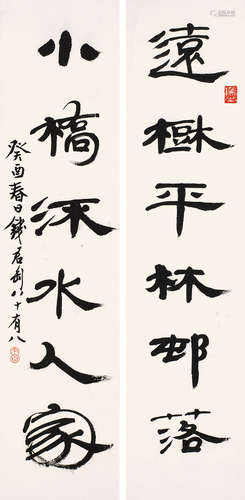 遠樹平林邨落
小橋流水人家
癸酉春日錢君匋八十有八